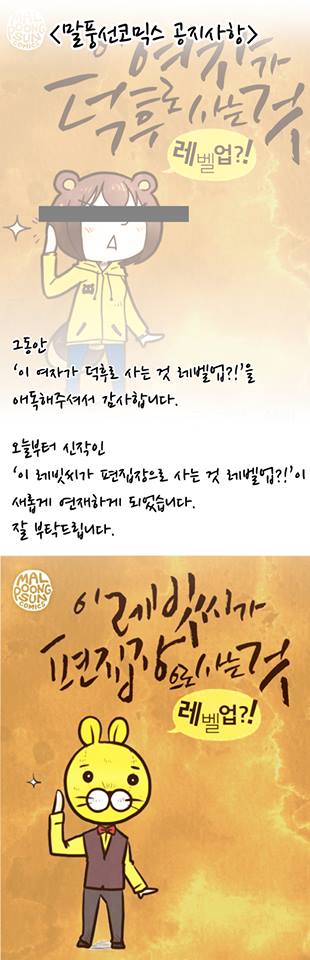 MAL
POONG
SUN
COMICS
<말풍선코믹스 공지사항>
이 여자가
덕후로 사는 것
레벨업?!
그동안
'이 여자가 덕후로 사는 것 레벨업?!'을
애독해주셔서 감사합니다.
오늘부터 신작인
'이 레빗씨가 편집장으로 사는 것 레벨업?!'이
새롭게 연재하게 되었습니다.
잘 부탁드립니다.
MAL
POONG
SUN
COMICS
이 레빗씨가
편집장으로 사는 것
레벨업?!